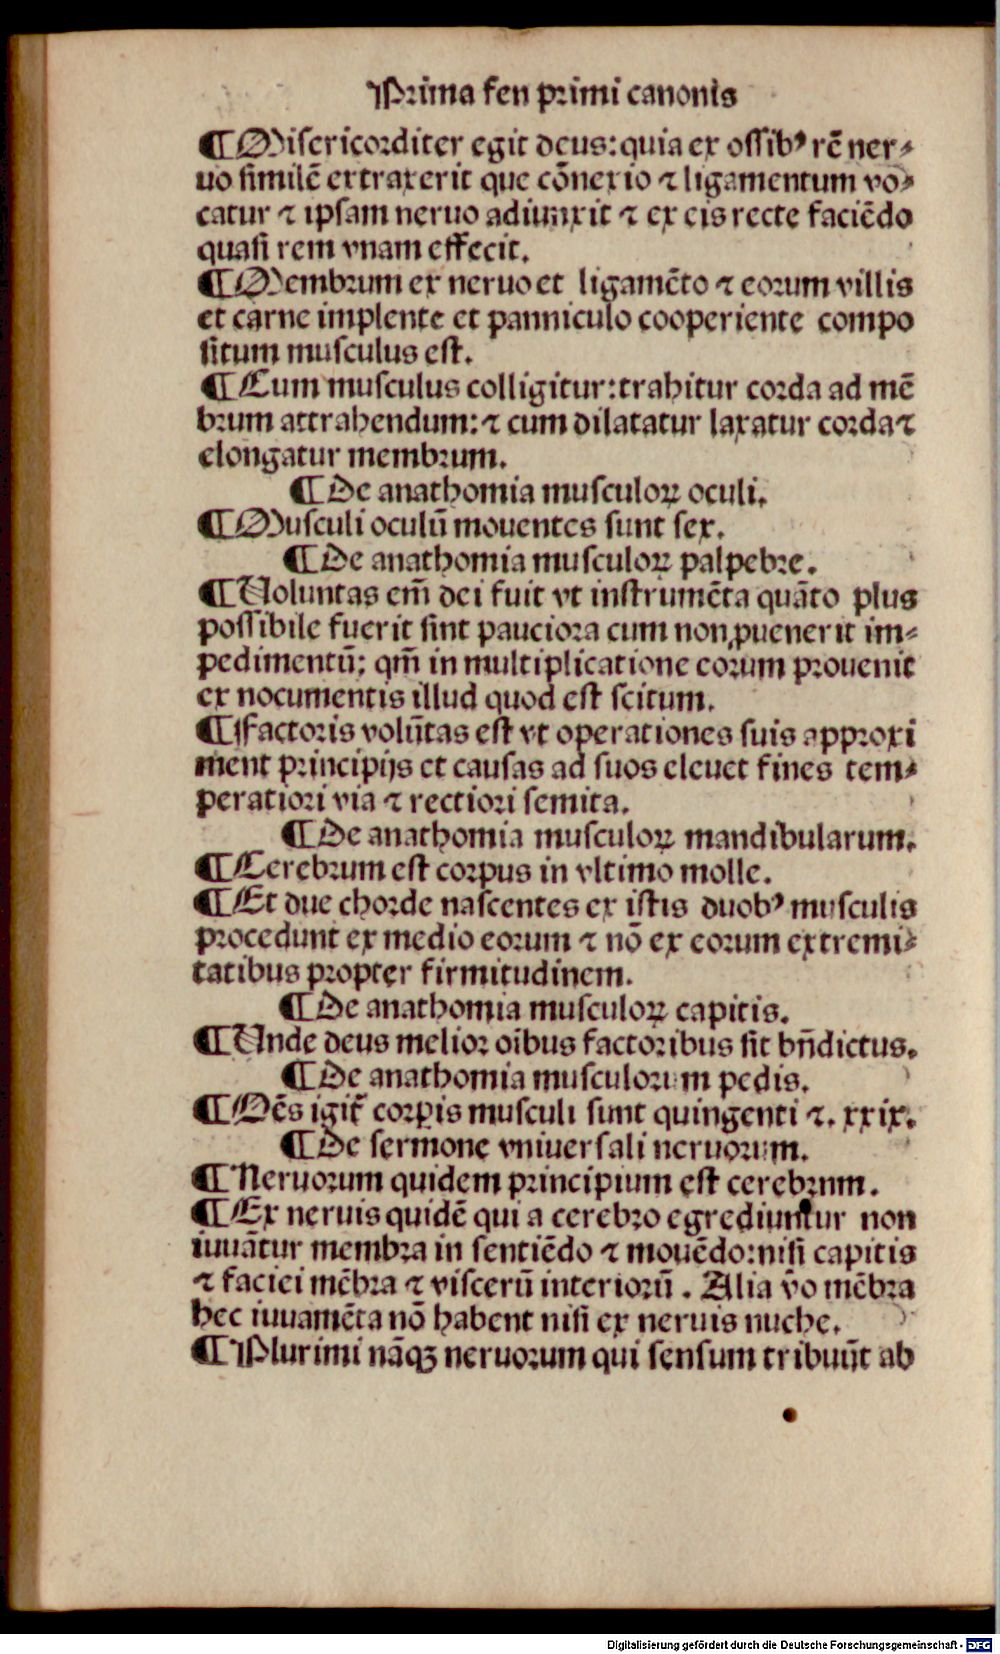 Prima fen primi canonis
¶ Misericorditer egit deus: quia ex ossibꝰ rē ner⸗
uo similē extraxerit que cōnexio ⁊ ligamentum vo⸗
catur ⁊ ipsam neruo adiunxit ⁊ ex eis recte faciēdo
quasi rem vnam effecit.
¶ Membrum ex neruo et ligamēto ⁊ eorum villis
et carne implente et panniculo cooperiente compo
situm musculus est.
¶ Cum musculus colligitur: trahitur corda ad mē
brum attrahendum: ⁊ cum dilatatur laxatur corda ⁊
elongatur membrum.
¶ De anathomia musculoꝝ oculi.
¶ Musculi oculū mouentes sunt sex.
¶ De anathomia musculoꝝ palpebre.
¶ Voluntas em̄ dei fuit vt instrumēta quāto plus
possibile fuerit sint pauciora cum non ꝓuenerit im⸗
pedimentū: qm̄ in multiplicatione eorum prouenit
ex nocumentis illud quod est scitum.
¶ Factoris volūtas est vt operationes suis approxi
ment principijs et causas ad suos eleuet fines tem⸗
peratiori via ⁊ rectiori semita.
¶ De anathomia musculoꝝ mandibularum.
¶ Cerebrum est corpus in vltimo molle.
¶ Et due chorde nascentes ex istis duobꝰ musculis
procedunt ex medio eorum ⁊ nō ex eorum extremi⸗
tatibus propter firmitudinem.
¶ De anathomia musculoꝝ capitis.
¶ Unde deus melior oībus factoribus sit bn̄dictus.
¶ De anathomia musculorum pedis.
¶ Oēs igit̄ corꝑis musculi sunt quingenti ⁊. xxix.
¶ De sermone vniuersali neruorum.
¶ Neruorum quidem principium est cerebrum.
¶ Ex neruis quidē qui a cerebro egrediuntur non
iuuātur membra in sentiēdo ⁊ mouēdo: nisi capitis
⁊ faciei mēbra ⁊ viscerū interiorū. Alia v̄o mēbra
hec iuuamēta nō habent nisi ex neruis nuche.
¶ Plurimi nāqꝫ neruorum qui sensum tribuūt ab
Digitalisierung gefördert durch die Deutsche Forschungsgemeinschaft - DFG